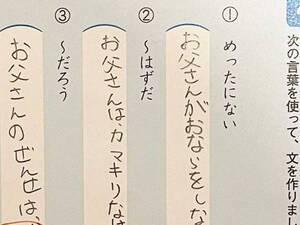 次の言葉を使って、文を作りまし
① めったにない
お父さんがおならをしな
② 〜はずだ
お父さんは、カマキリなは
③ 〜だろう
お父さんのぜんせは、